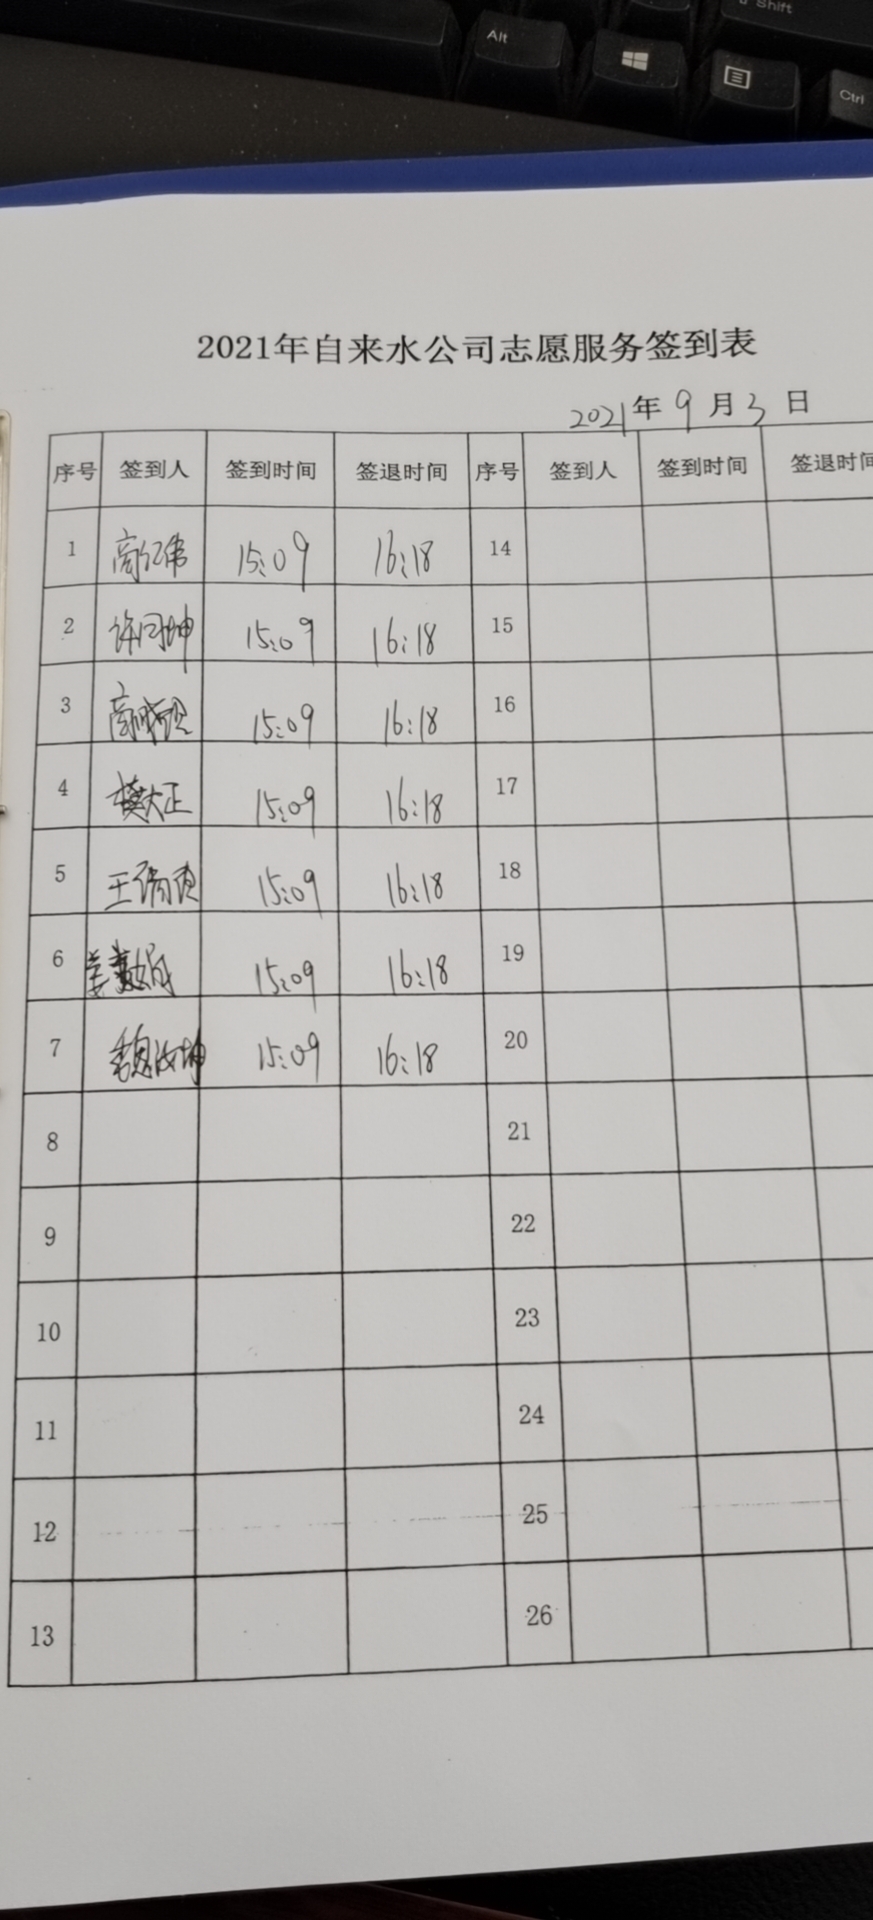 Alt
Shift
Ctrl
2021年自来水公司志愿服务签到表
2021年9月3日
序号 签到人 签到时间 签退时间 序号 签到人 签到时间 签退时间
1 高仁伟 15:09 16:18 14
2 许同坤 15:09 16:18 15
3 高 15:09 16:18 16
4 大正 15:09 16:18 17
5 王 15:09 16:18 18
6 姜 15:09 16:18 19
7 魏 坤 15:09 16:18 20
8 21
9 22
10 23
11 24
12 25
13 26